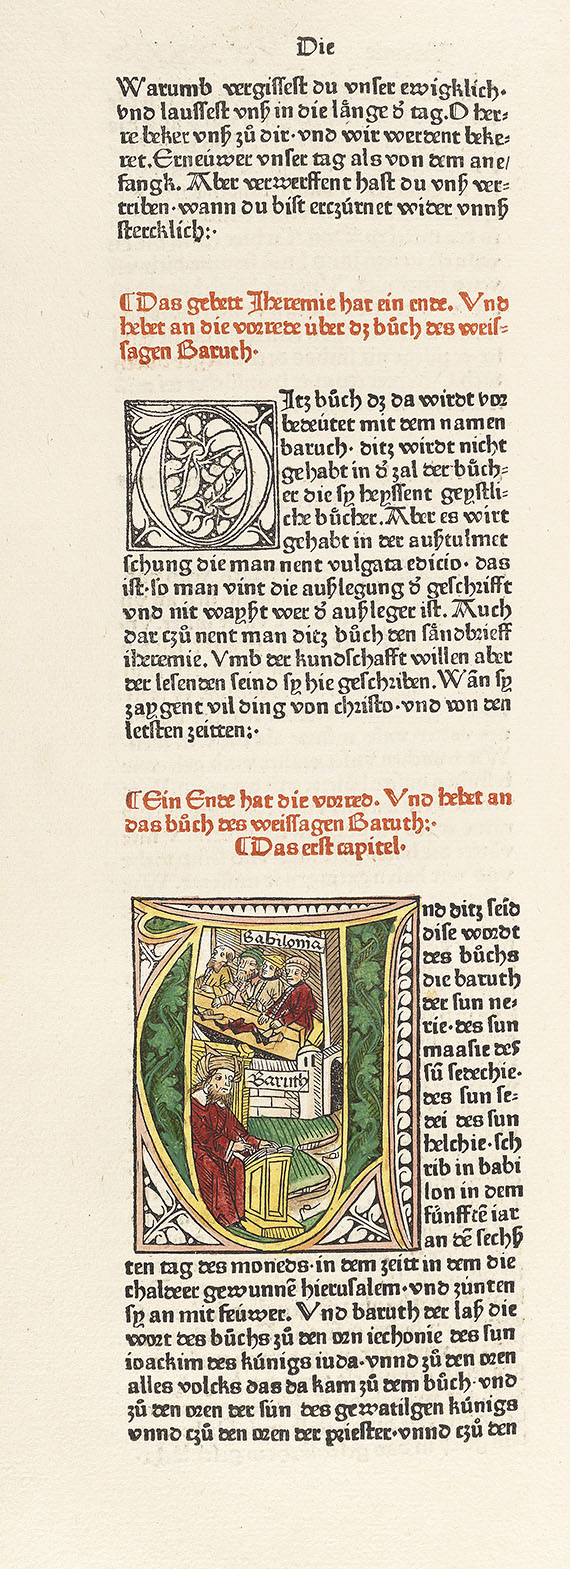 Die
Warumb vergissest du vnser ewigklich.
vnd laussest vnß in die långe d̕ tag. O her⸗
re beker vnß zů dir·vnd wir werdent beke⸗
ret. Erneüwer vnser tag als von dem ane/
fangk. Aber verwerffent hast du vnß ver⸗
triben·wann du bist erczúrnet wider vnnß
stercklich:·
¶Das gebett Jheremie hat ein ende. Vnd
hebet an die vorrede über dz bůch des weis⸗
sagen Baruch·
DItz bůch dz da wirdt vor
bedeütet mit dem namen
baruch· ditz wirdt nicht
gehabt in d̕ zal der bůch⸗
er die sy heyssent geystli⸗
che bůcher. Aber es wirt
gehabt in der außtulmet
schung die man nent vulgata edicio· das
ist·so man vint die außlegung d̕ geschrifft
vnd nit wayßt wer d̕ außleger ist. Auch
dar czů nent man ditz bůch den såndbrieff
iheremie. Vmb der kundschafft willen aber
der lesenden seind sy hie geschriben. Wān sy
zaygent vil ding von christo·vnd von den
letsten zeitten:·
¶Ein Ende hat die vorred. Vnd hebet an
das bůch des weissagen Baruch:·
¶Das erst capitel·
Babilonia
Baruch
Vnd ditz seid
dise wordt
des bůchs
die baruch
der sun ne⸗
rie·des sun
maasie des
sū sedechie·
des sun se⸗
dei des sun
helchie·sch
rib in babi
lon in dem
fünfftē iar
an dē sechß
ten tag des moneds·in dem zeitt in dem die
chaldeer gewunnē hierusalem·vnd zúnten
sy an mit feüwer. Vnd baruch der laß die
wort des bůchs zů den orn iechonie des sun
ioackim des kúnigs iuda·vnnd zů den oren
alles volcks das da kam zů dem bůch·vnd
zů den oren der sün des gewatilgen kúnigs
vnnd czů den oren der priester·vnnd czů den